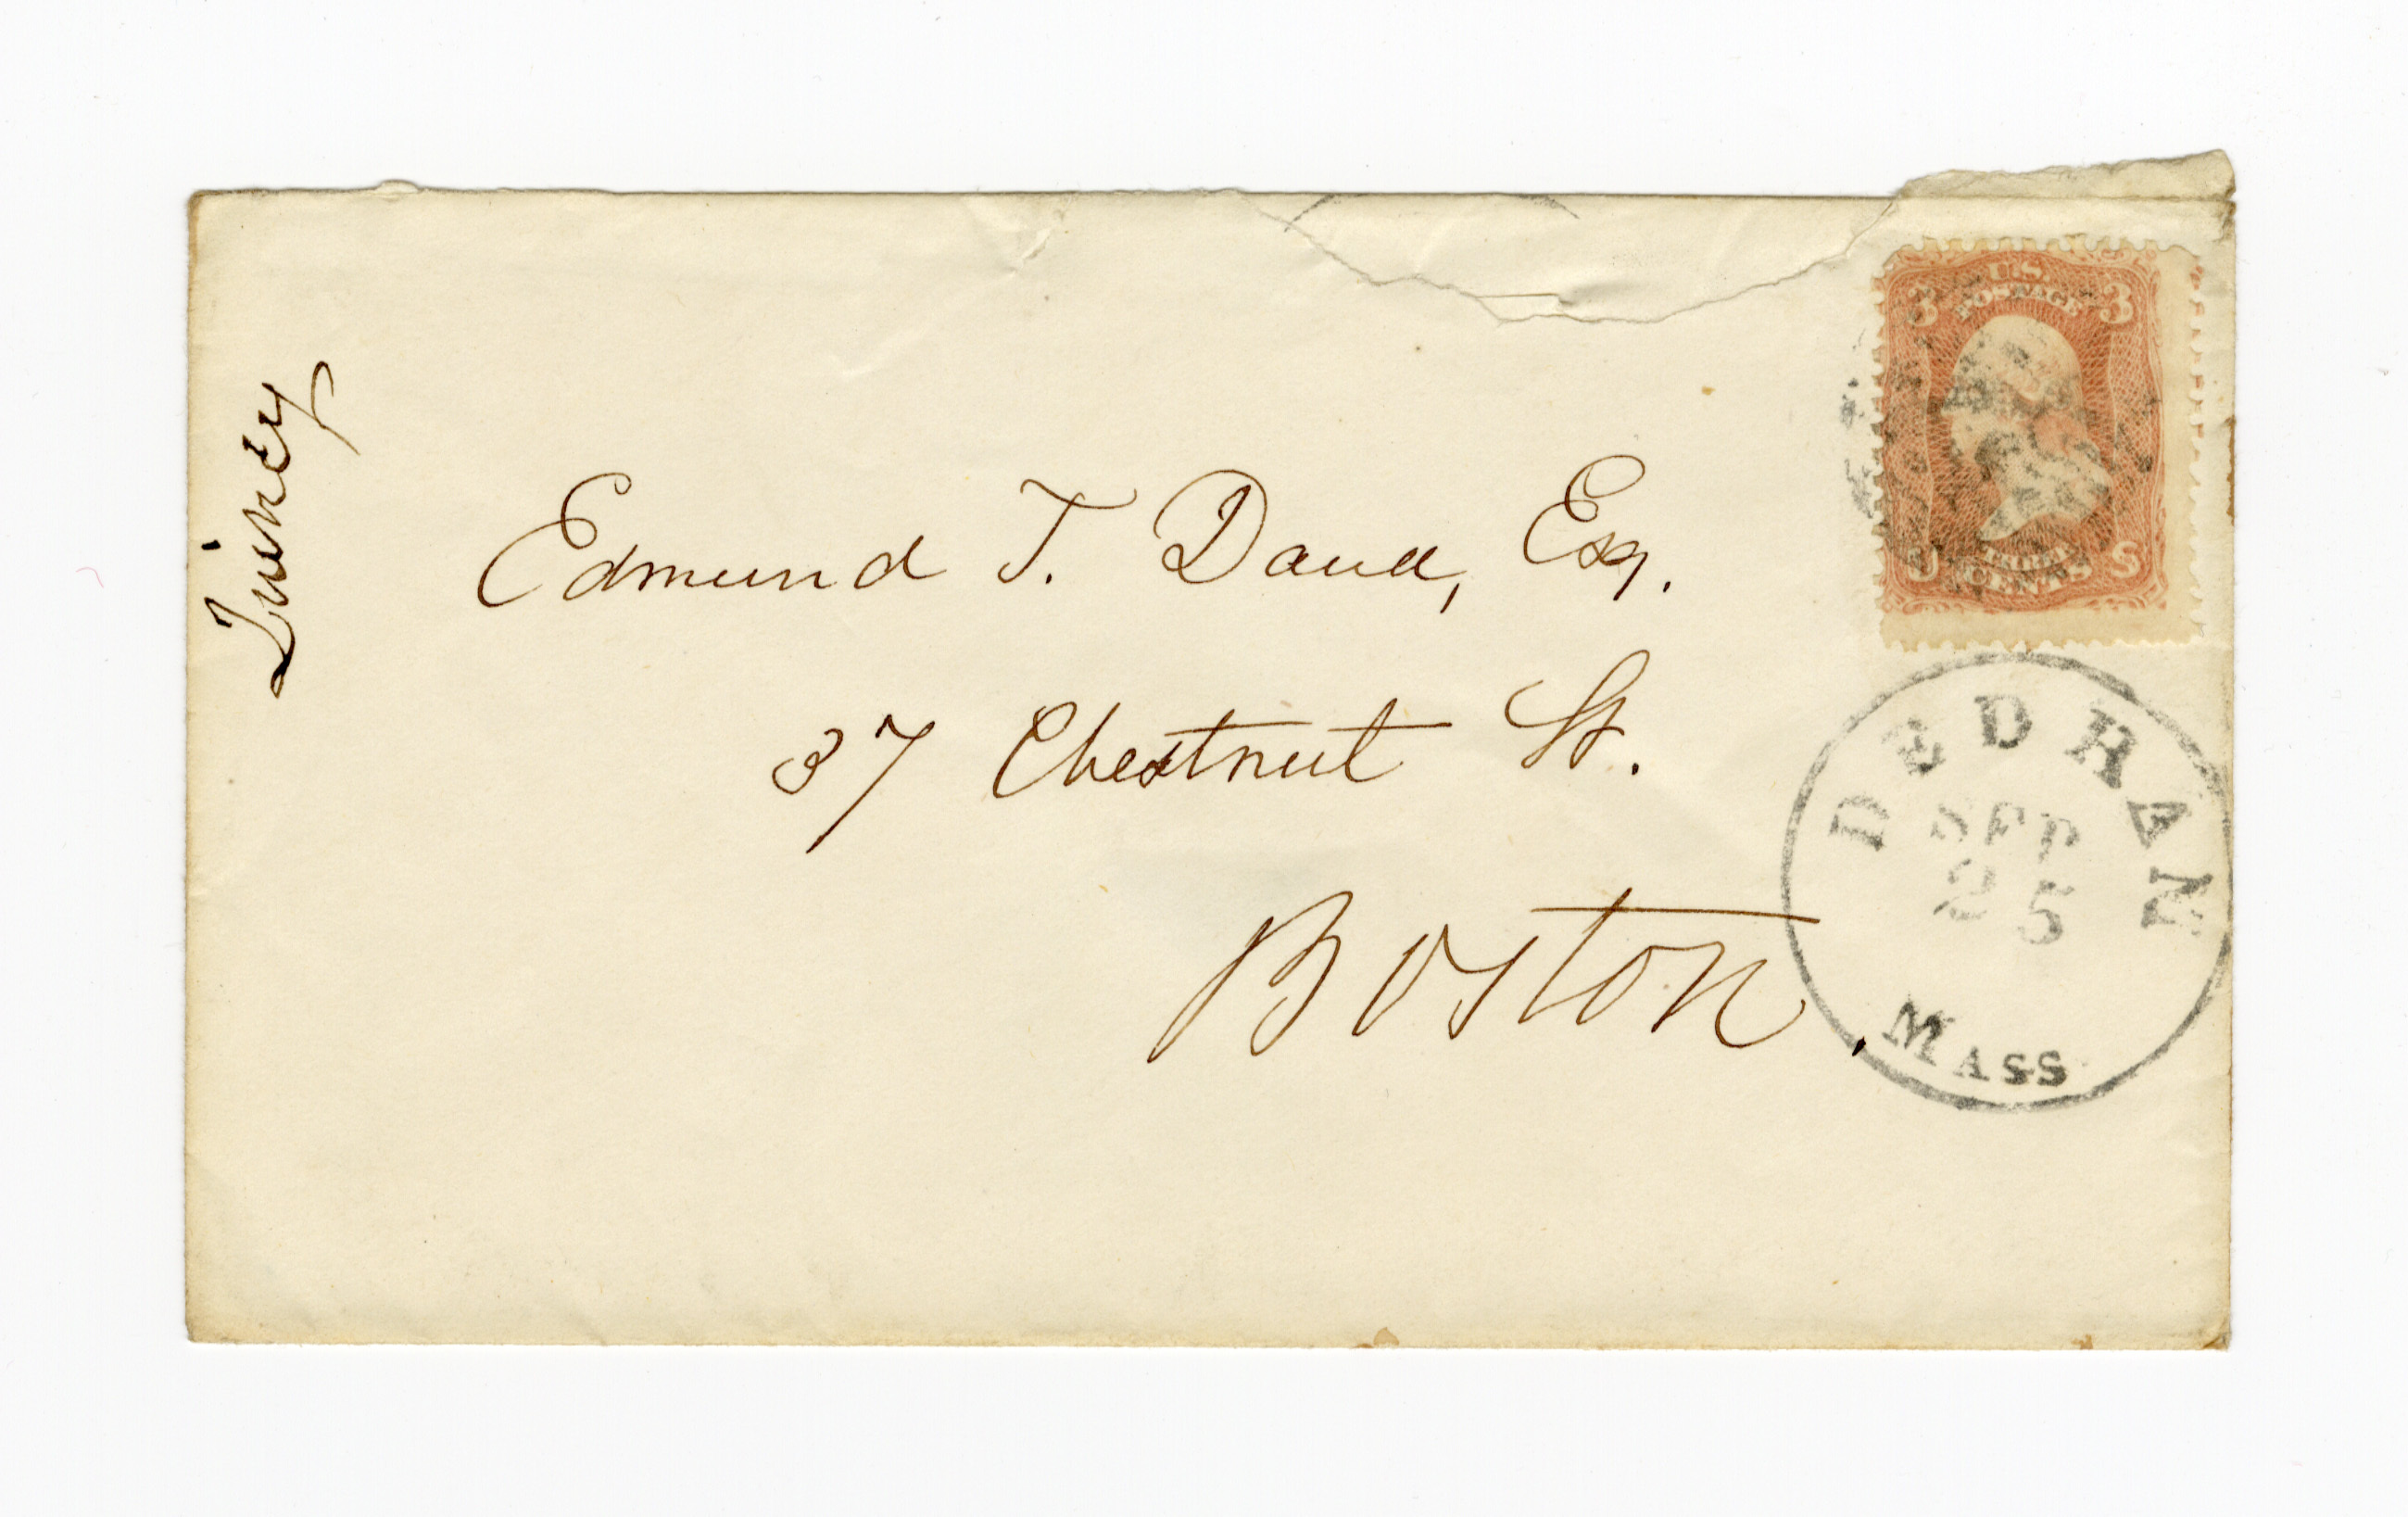 Quincy
Edmund T. Dana, Esq.
37 Chestnut St.
Boston.
U.S.
POSTAGE
3 3
THREE
CENTS
U S
DEDHAM
SEP
25
MASS